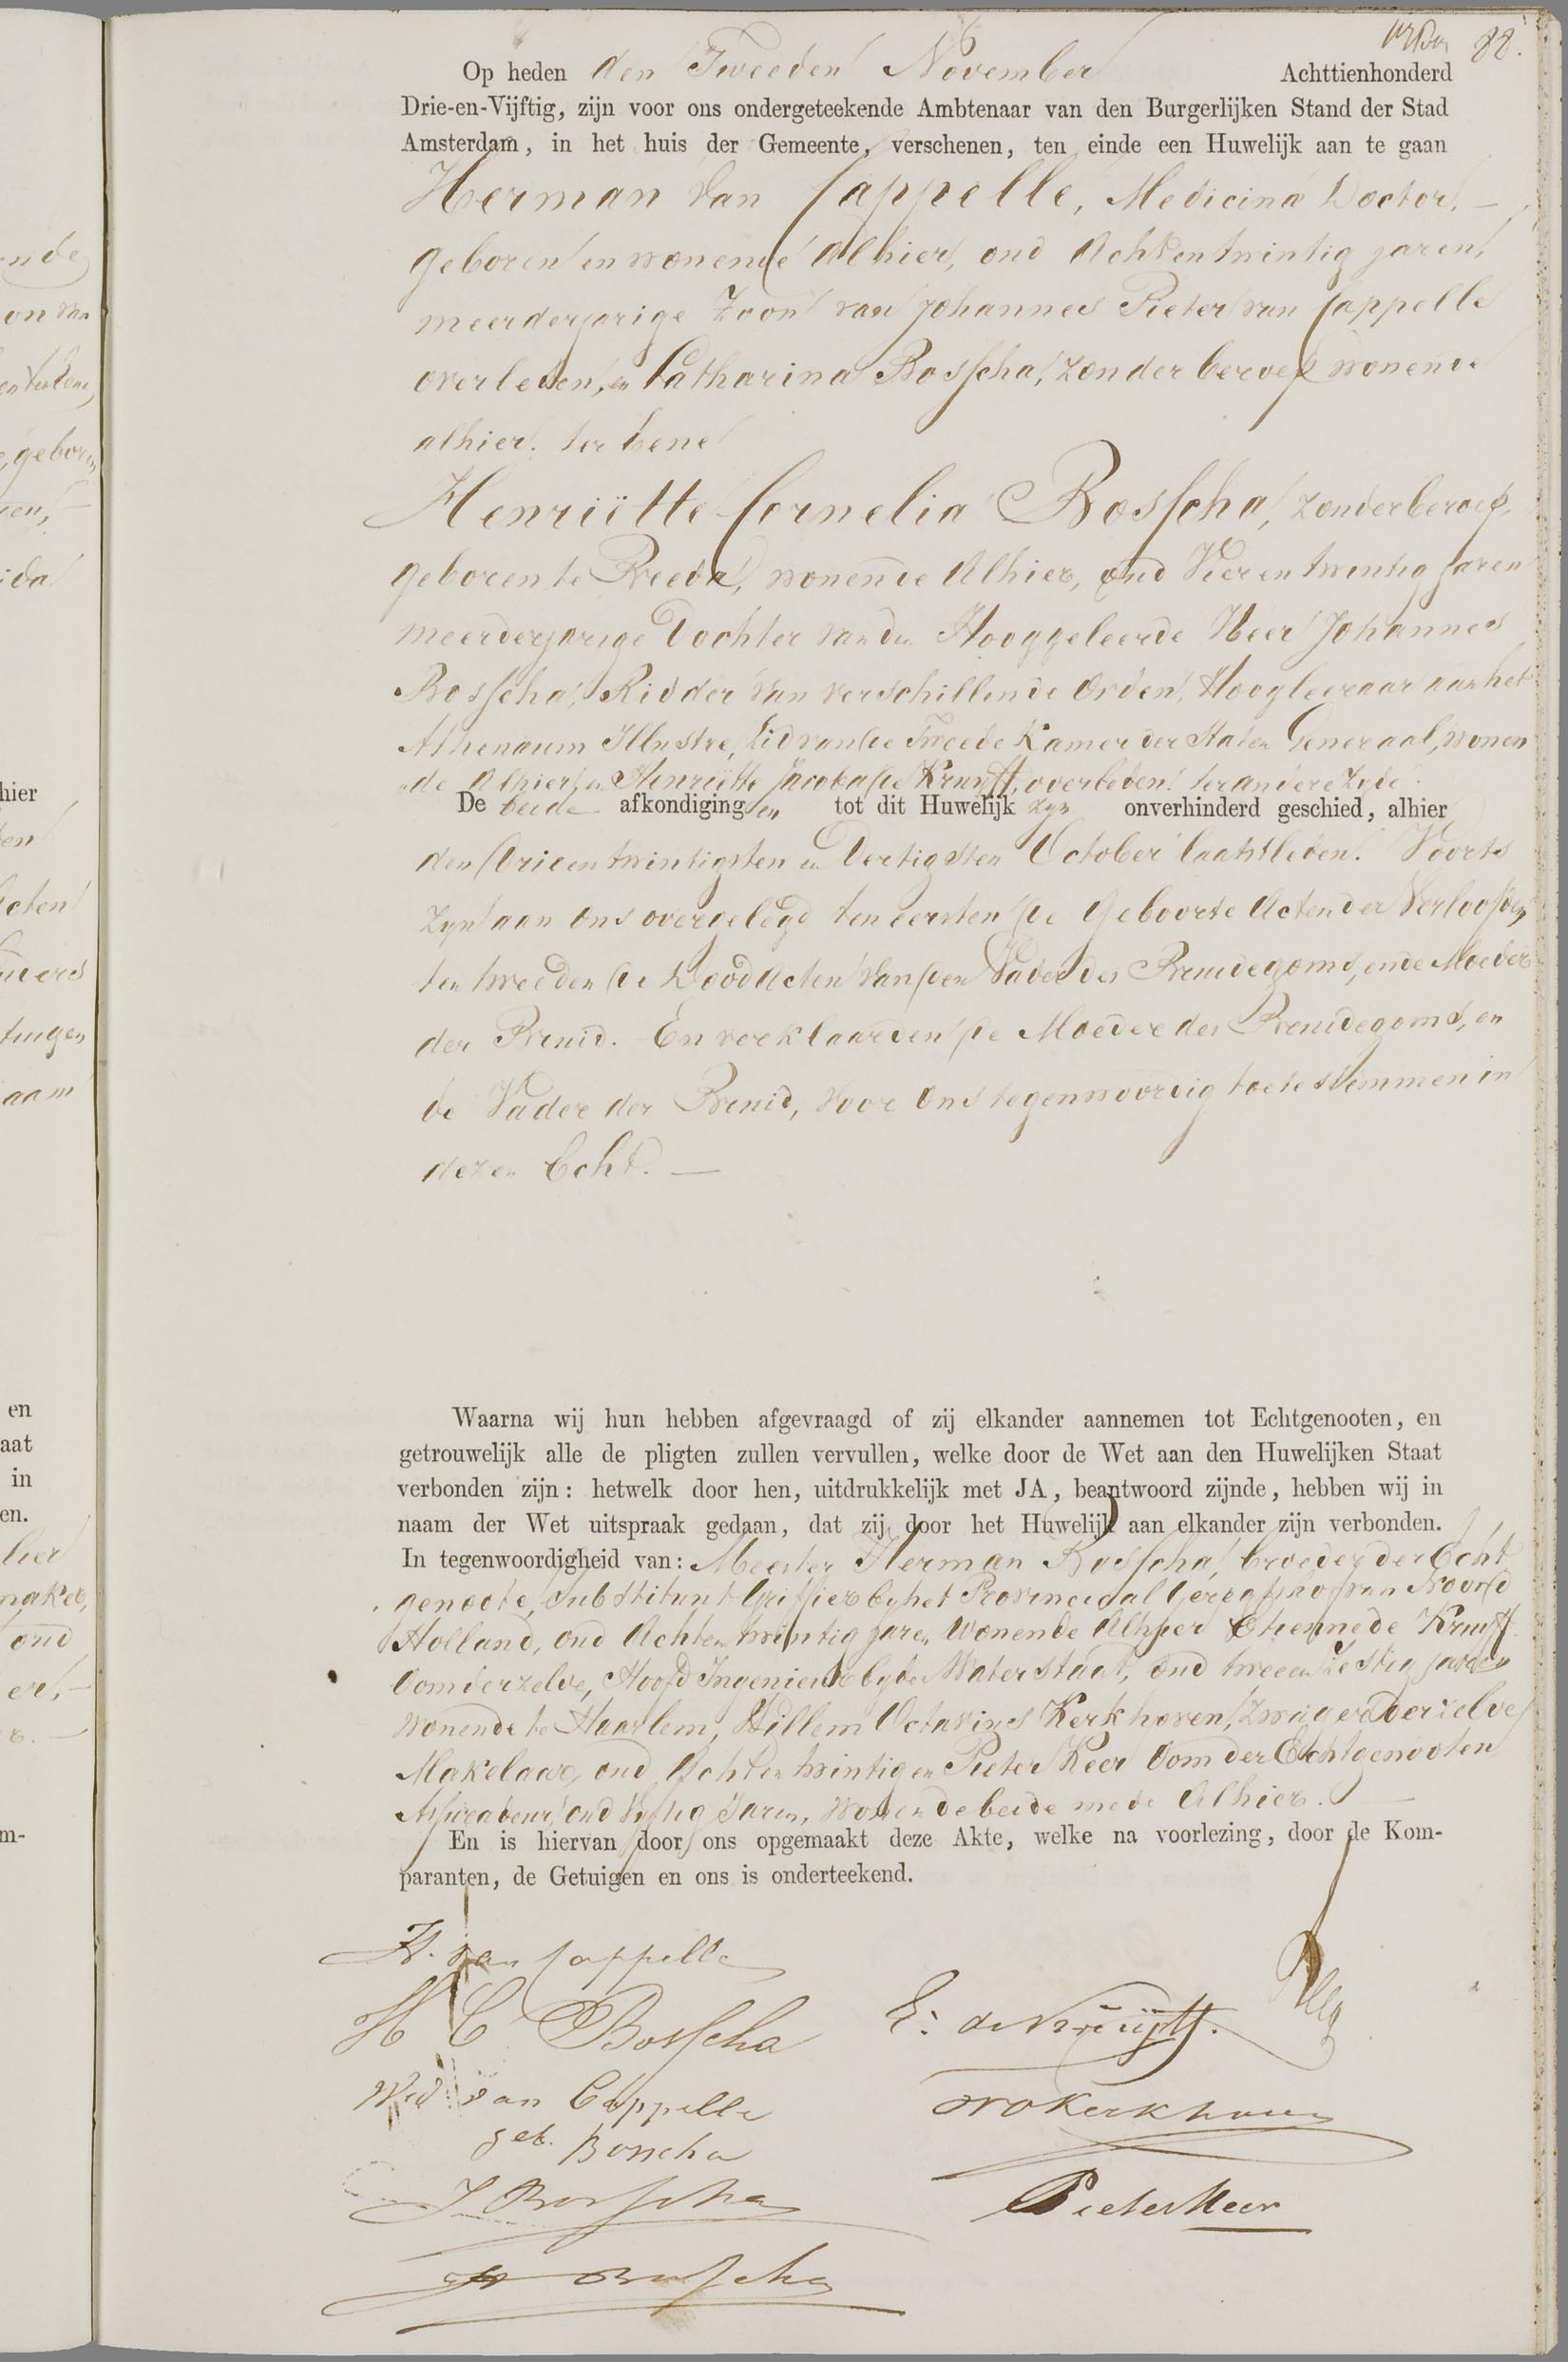 88.
Op heden den Tweeden November Achttienhonderd
Drie-en-Vijftig, zijn voor ons ondergeteekende Ambtenaar van den Burgerlijken Stand der Stad
Amsterdam, in het huis der Gemeente, verschenen, ten einde een Huwelijk aan te gaan
Herman van Cappelle, Medicina Doctor, —
geboren en wonende Alhier, oud Achtentwintig jaren,
meerderjarige Zoon van Johannes Pieter van Cappelle
overleden, en Catharina Bosscha, zonder beroep wonende
alhier. ter eene
Henriëtte Cornelia Bosscha, zonder beroep,
geboren te Breda, wonende Alhier, oud Vierentwintig jaren
meerderjarige Dochter van den Hooggeleerde Heer Johannes
Bosscha, Ridder van verschillende Orden, Hoogleeraar aan het
Athenaum Illustre, Lid van de Tweede Kamer der Staten Generaal, wonen
de Alhier, en Henriëtte Jacoba de Kruyff, overleden. ter andere Zyde.
De beide afkondigingen tot dit Huwelijk zyn onverhinderd geschied, alhier
den Drieentwintigsten en Dertigsten October laatstleden. Voorts
zyn aan Ons overgelegd ten eersten de Geboorte Acten der Verloofden
ten tweeden de Dood Acten van den Vader des Bruidegoms, en de Moeder
der Bruid. En verklaarden de Moeder des Bruidegoms, en
de Vader der Bruid, voor Ons tegenwoordig toetestemmen in
dezen Echt. —
Waarna wij hun hebben afgevraagd of zij elkander aannemen tot Echtgenooten, en
getrouwelijk alle de pligten zullen vervullen, welke door de Wet aan den Huwelijken Staat
verbonden zijn: hetwelk door hen, uitdrukkelijk met JA, beantwoord zijnde, hebben wij in
naam der Wet uitspraak gedaan, dat zij door het Huwelijk aan elkander zijn verbonden.
In tegenwoordigheid van: Meester Herman Bosscha, broeder der Echt
genoote, Substituut Griffier by het Provinciaal Geregtshof van Noord
Holland, oud Achtentwintig jaren Wonende Alhier Etienne de Kruyff
Oom derzelve, Hoofd Ingenieur by den Waterstaat, oud tweeenzestig jaren
wonende te Haarlem, Willem Octavius Kerkhoven, zwager derzelve
Makelaar, oud Achtentwintig en Pieter Meer Oom der Echtgenooten
Assuradeur, oud Vyftig Jaren, Wonende beide mede Alhier. —
En is hiervan door ons opgemaakt deze Akte, welke na voorlezing, door de Kom-
paranten, de Getuigen en ons is onderteekend.
H. van Cappelle
H C Bosscha
E: de Kruijff.
Wed van Cappelle
geb. Bosscha
WO Kerkhoven
J Bosscha
Pieter Meer
H Bosscha